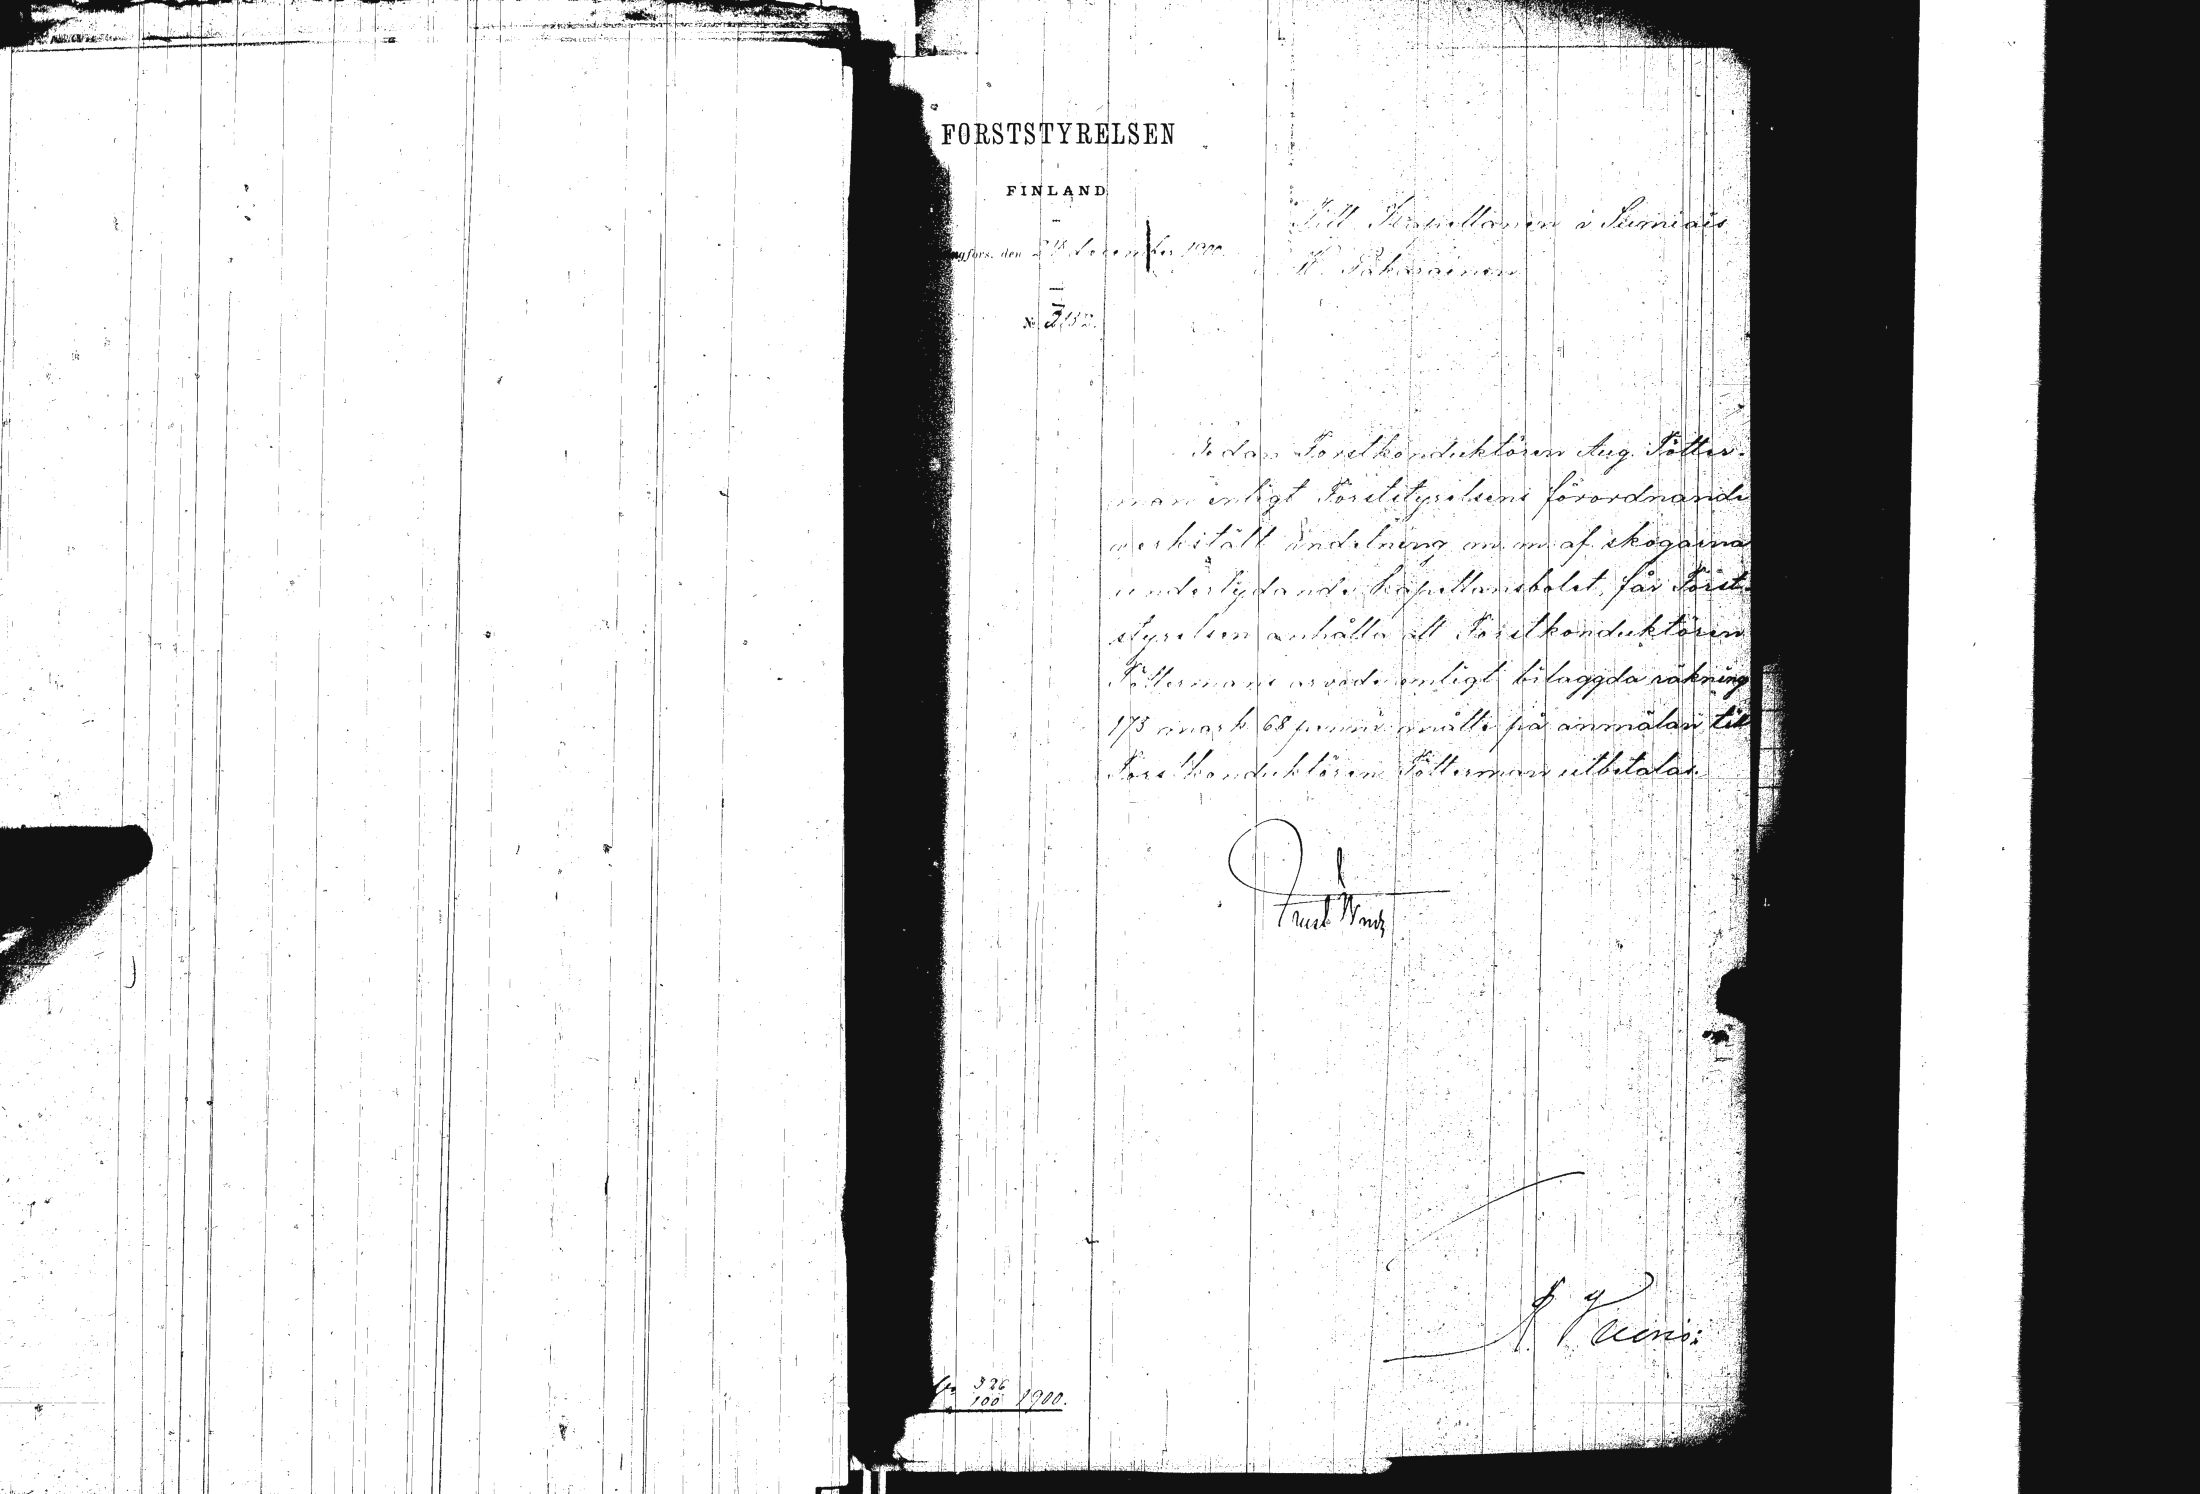 FORSTSTYRELSEN
FINLAND
ngfors, den december 1900.
№
Till Kapellanen i Sumiais
K. Pakarainen
Sedan Forstkonduktören Aug. Fötter-
man enligt Forststyrelsens förordnande
verkstält indelning m. m. af skogarna
underlydande kapellansbolet, får Forst-
styrelsen anhålla att Forstkonduktören
Föttermans arvode enligt bilaggda räkning
173 mark 68 penni måtte på anmälan till
Forstkonduktören Fötterman utbetalas.
326
100 1900.